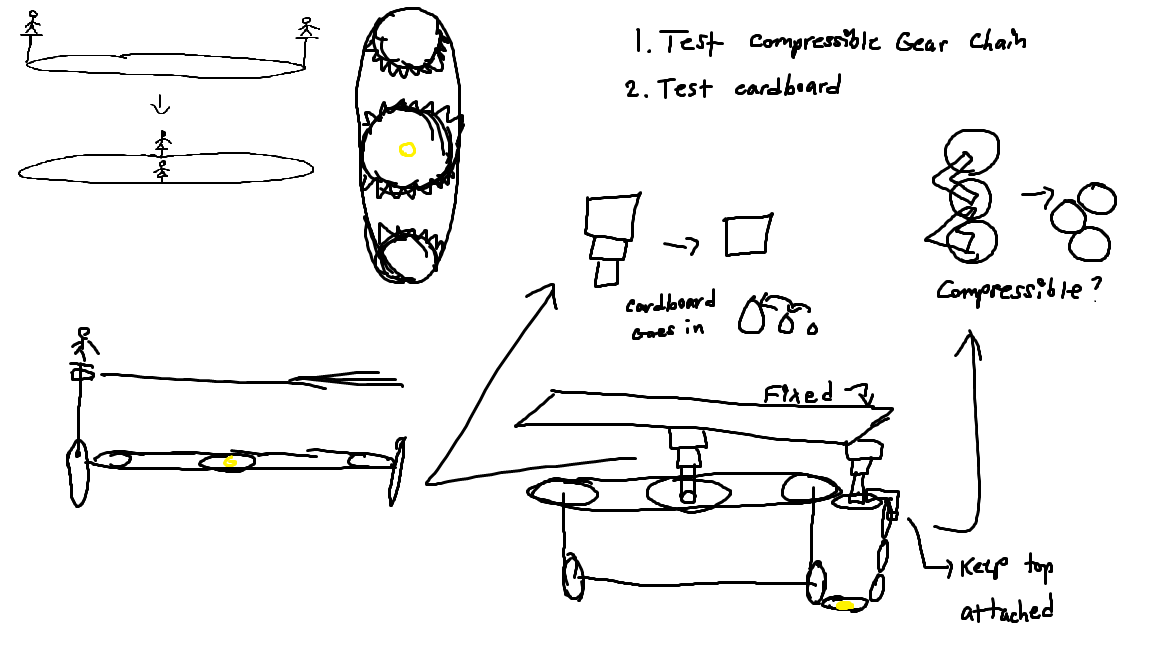 1. Test Compressible Gear Chain
2. Test cardboard
cardboard
Goes in
Compressible?
Fixed
Keep top
attached